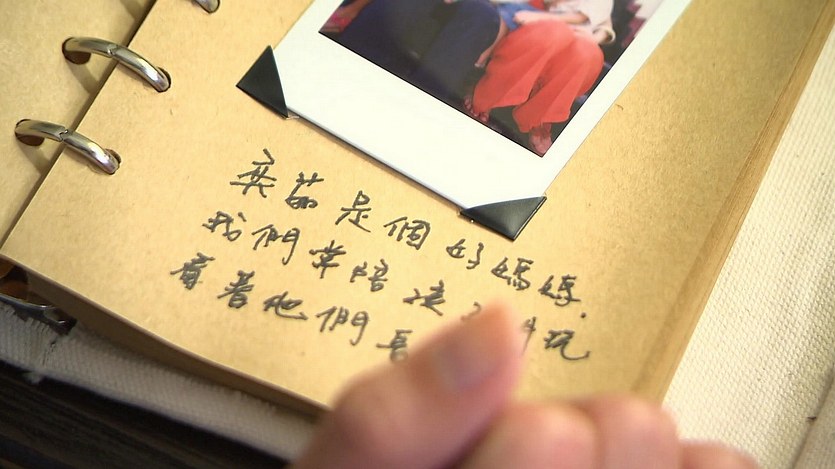 奕茹是個好媽媽.
我們常陪 玩
看著他們長